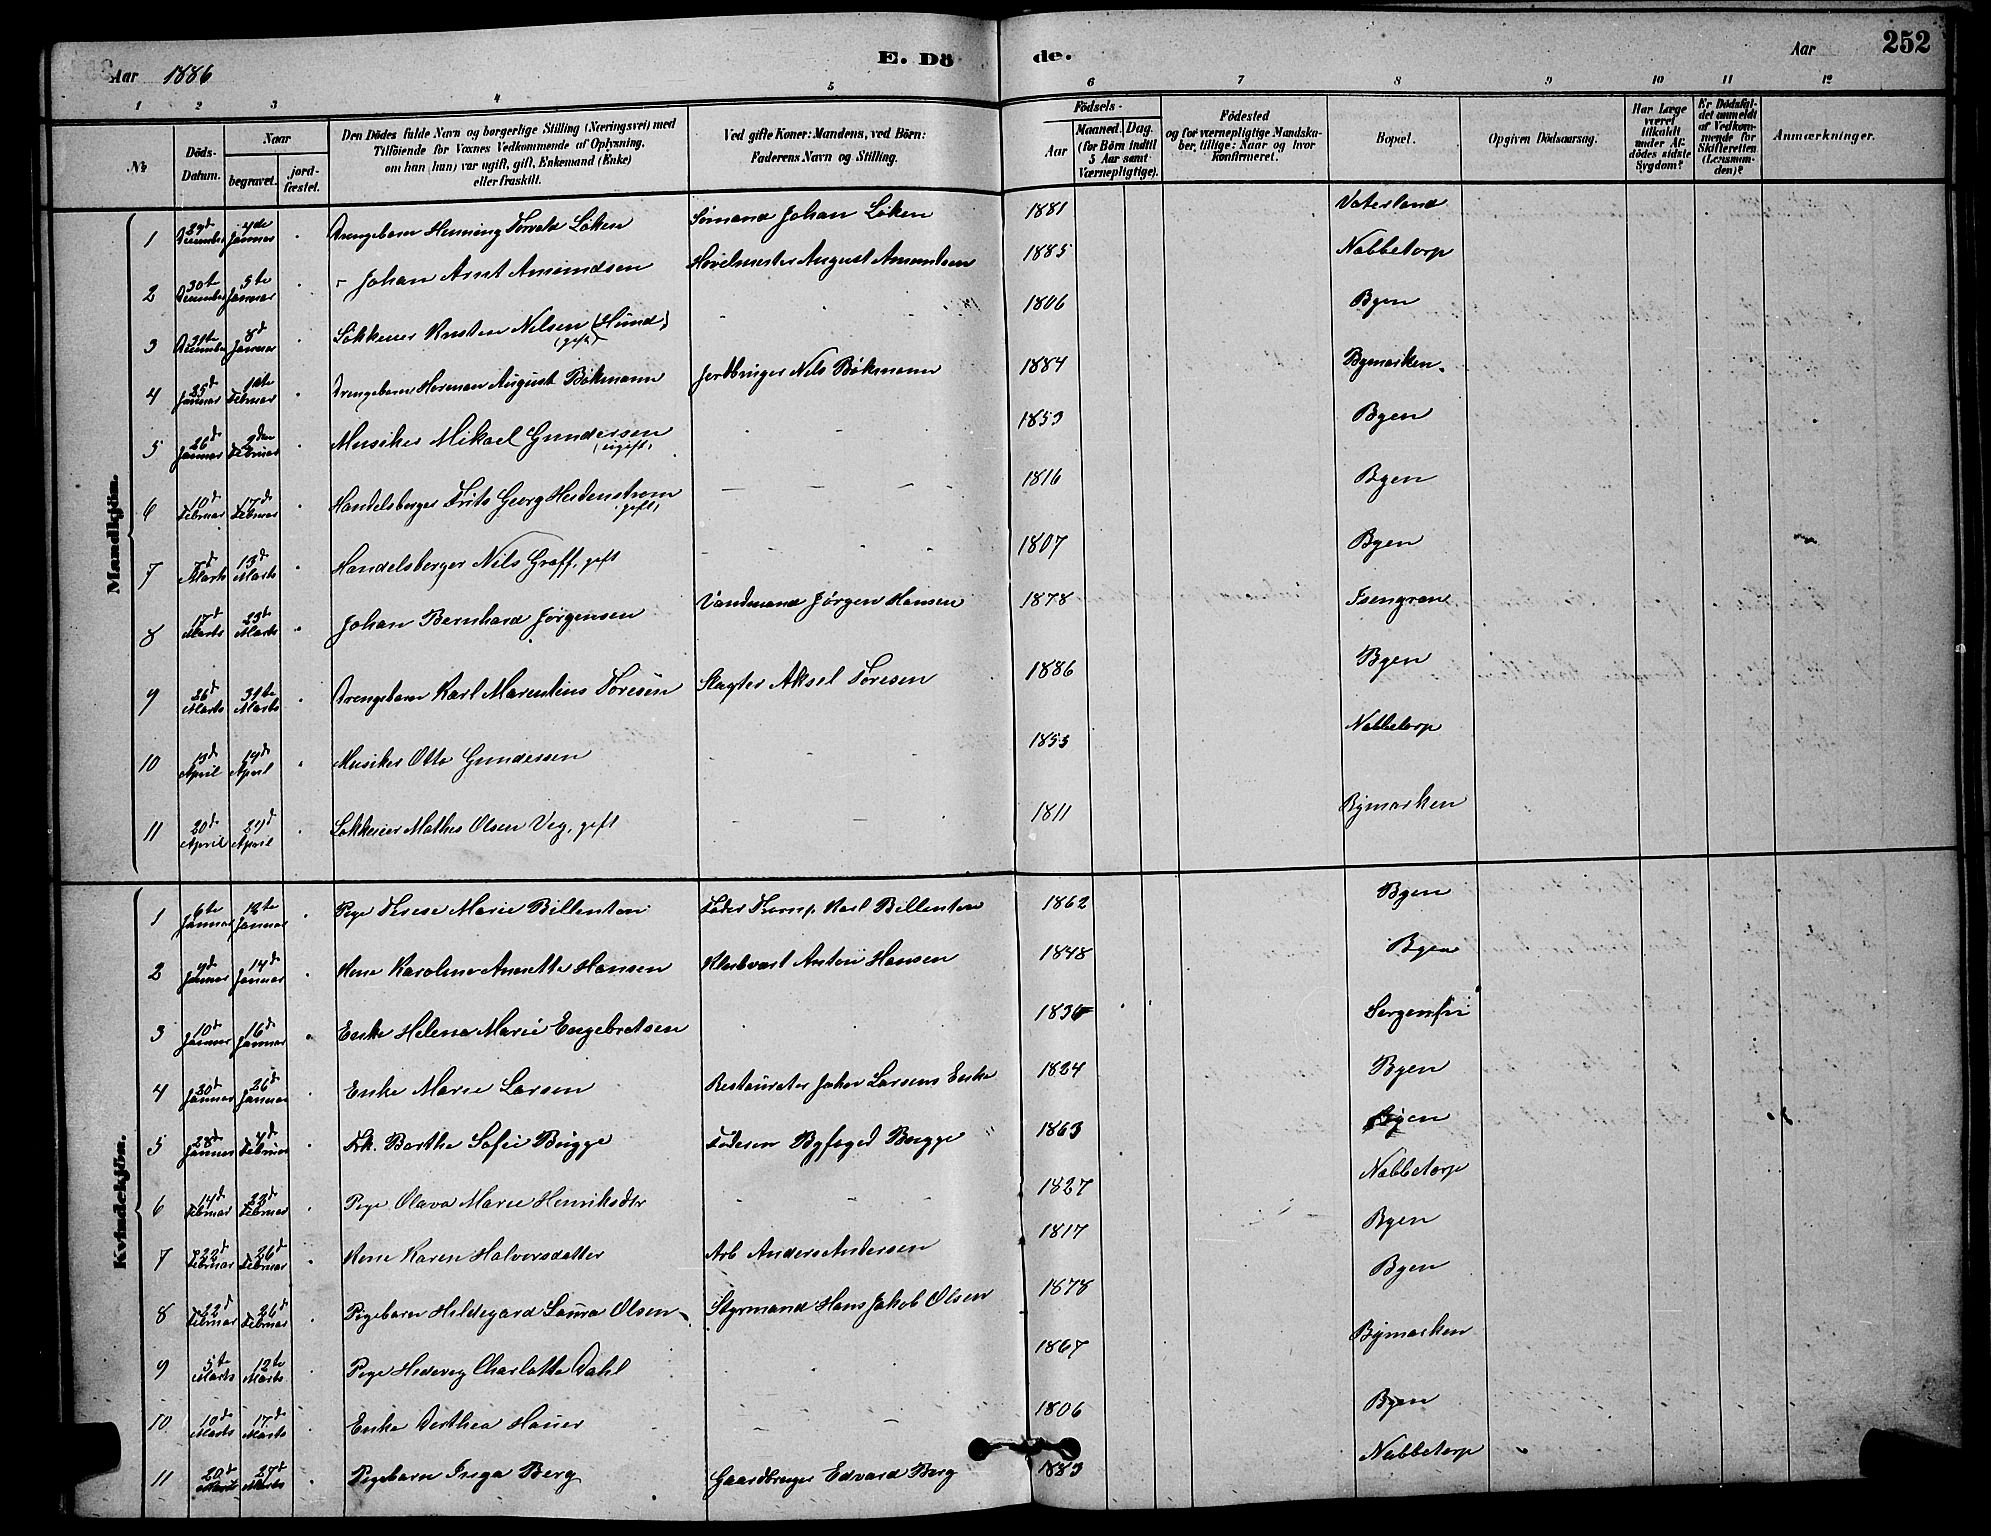 Aar 1886
E. Dö
de.
Aar
252
1 2 3 4 5 6 7 8 9 10 11 12
№
Döds-Datum.
Naar
begravet.
jord-fæstet.
Den Dödes fulde Navn og borgerlige Stilling (Næringsvei) med
Tilföiende for Voxnes Vedkommende af Oplysning,
om han (hun) var ugift, gift, Enkemand (Enke)
eller fraskilt.
Ved gifte Koner: Mandens, ved Börn:
Faderens Navn og Stilling.
Födsels-
Aar
Maaned. Dag.
(for Börn indtil
5 Aar samt
Værnepligtige).
Födested
og for værnepligtige Mandska-
ber, tillige: Naar og hvor
Konfirmeret.
Bopæl.
Opgiven Dödsaarsag.
Har Læge
været
tilkaldt
under Af-
dödes sidste
Sygdom?
Er Dödsfal-
det anmeldt
af Vedkom-
mende for
Skifteretten
(Lensman-
den)?
Anmærkninger.
Mandkjön.
1 29d December 4de Januar Drengebarn Henning Torvald Løken Sømand Johan Løken 1881 Vaterland
2 30te December 5te Januar " Johan Arnt Amundsen August Amundsen 1885 Nabbetorp
3 31te December 8d Januar Løkkeeier Kristen Nilsen (Hund) gift 1806 Byen
4 25d Januar 10de Februar Drengebarn Herman August Bökmann Jordbruger Nils Bökmann 1884 Bymarken
5 26d Januar 2den Februar Musiker Mikael Gundersen (ugift) 1853 Byen
6 10d Februar 17d Februar Handelsborger Frits Georg Heidenstrøm gift 1816 Byen
7 7d Marts 13d Marts Handelsborger Nils Graff, gift 1807 Byen
8 17d Marts 23d Marts Johan Bernhard Jørgensen Jørgen Hansen 1878 Isengran
9 26d Marts 31te Marts Drengebarn Karl Marentius Toresen Slagter Aksel Toresen 1886 Byen
10 13d April 19d April Musiker Otto Gundersen 1853 Nabbetorp
11 20d April 27d April Løkkeeier Mathis Olsen Veg, gift 1811 Bymarken
Kvindekjön.
1 6te Januar 12te Januar Pige Terese Marie Billenton Karl Billenton 1862 Byen
2 9d Januar 14d Januar Kone Karoline Annette Hansen Anton Hansen 1848 Byen
3 10d Januar 16d Januar Enke Helene Marie Engebretsen Sorgenfri
4 20d Januar 26d Januar Enke Marie Larsen Restauratør Larsens Enke 1824 Byen
5 28d Januar 4d Februar Frk. Barthe Sofie Brügge Faderen Byfoged Brügge 1863 Byen
6 14d Februar 22d Februar Pige Olava Marie Henriksdtr 1827 Nabbetorp
7 22d Februar 26d Februar Kone Karen Halvorsdatter Arb Anders Andersen 1817 Byen
8 22d Februar 26d Februar Pigebarn Hildegard Laura Olsen Styrmand Hans Jakob Olsen 1878 Byen
9 5te Marts 12te Marts Pige Hedevig Charlotte Dahl 1867 Bymarken
10 10d Marts 17d Marts Enke Dorthea Hauer 1806 Byen
11 20d Marts 27d Marts Pigebarn Inga Berg Gaardbruger Edvard Berg 1883 Nabbetorp